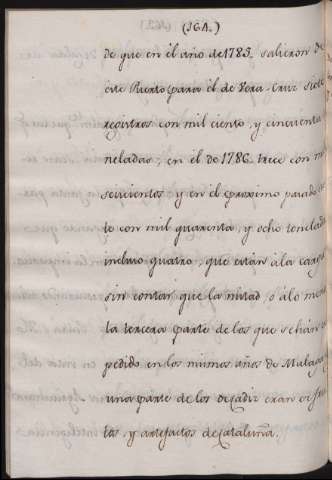 (164.)
de que en el año de 1785. salieron de
este Puerto para el de Vera-Cruz siete
registros con mil ciento, y cincuenta
neladas; en el de 1786. trece con mil
seiscientos y en el proximo pasado
te con mil quarenta, y ocho tonelad
incluso quatro, que están à la carga
sin contar que la mitad, o à lo men
la tercera parte de los que se hán
pedido en los mismos años de Malaga
una parte de los de Cadiz eran
tos, y artefactos de Cataluña.